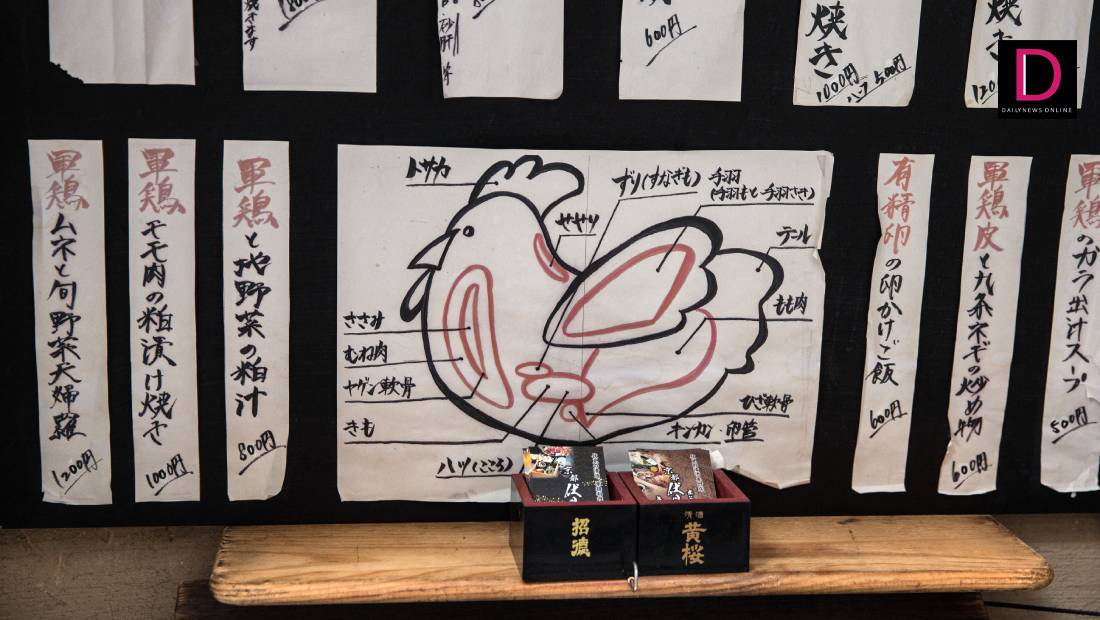 600円
焼き
1000円
ハーフ 500円
焼き
D
DAILYNEWS ONLINE
軍鶏ムネと旬野菜天婦羅
1200円
軍鶏モモ肉の粕漬け焼き
1000円
軍鶏と地野菜の粕汁
800円
トサカ
せせり
ずり(すなぎも)
手羽
(手羽もと・手羽さき)
テール
ささみ
むね肉
ヤゲン軟骨
きも
ハツ(こころ)
もも肉
ひざ軟骨
キンカン・卵管
有精卵の卵かけご飯
600円
軍鶏皮と九条ネギの炒め物
600円
軍鶏のガラ出汁スープ
500円
京都
京都
清酒
黄桜